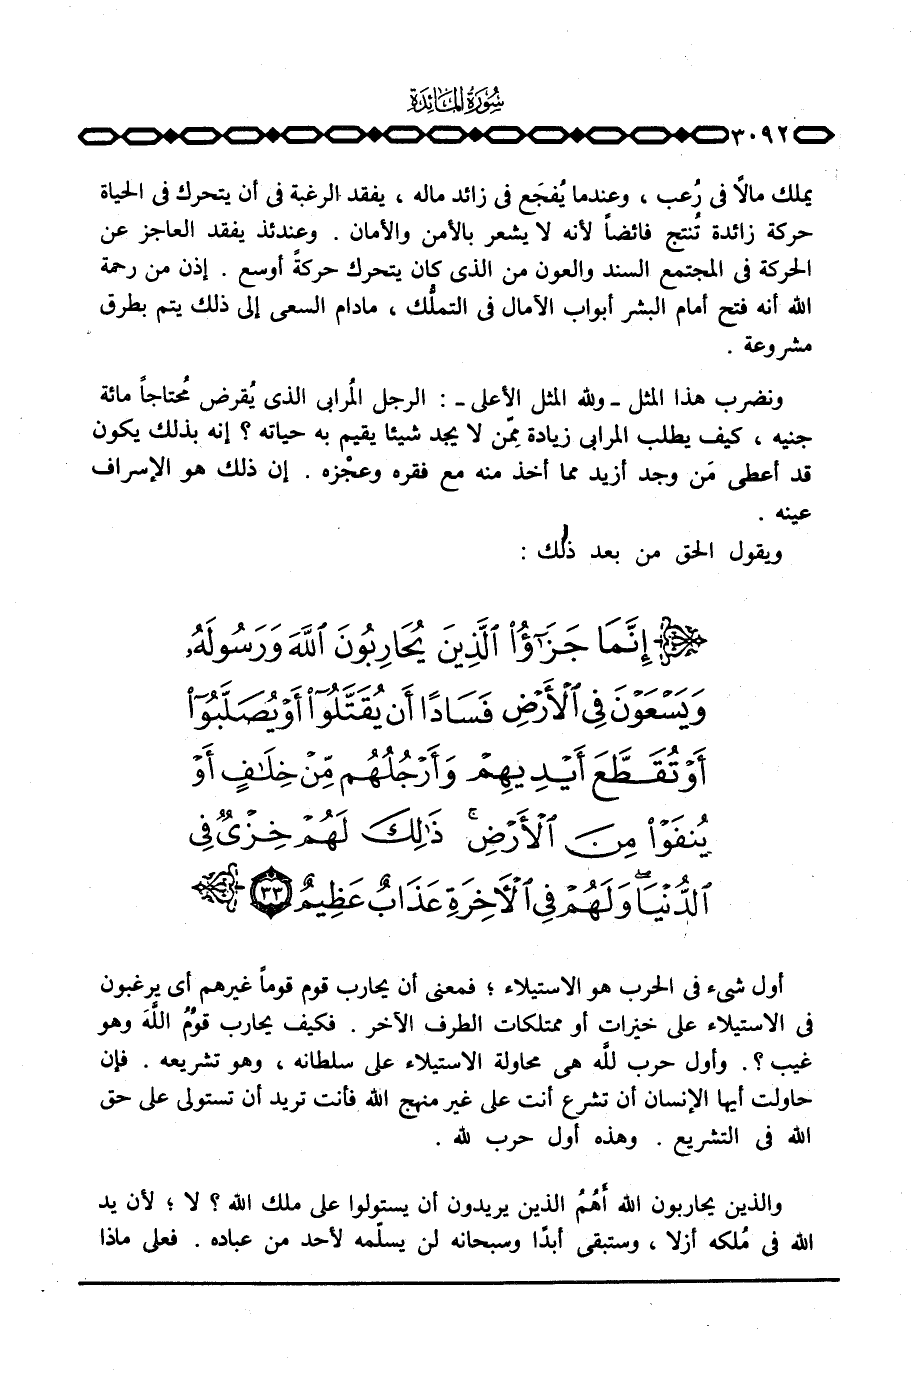 سُورَةُ المَائِدَةِ
٣٠٩٢
يملك مالًا فى رُعب ، وعندما يُفجَع فى زائد ماله ، يفقد الرغبة فى أن يتحرك فى الحياة
حركة زائدة تُنتج فائضاً لأنه لا يشعر بالأمن والأمان . وعندئذ يفقد العاجز عن
الحركة فى المجتمع السند والعون من الذى كان يتحرك حركةً أوسع . إذن من رحمة
الله أنه فتح أمام البشر أبواب الآمال فى التملُّك ، مادام السعى إلى ذلك يتم بطرق
مشروعة .
ونضرب هذا المثل ـ ولله المثل الأعلى ـ : الرجل المُرابى الذى يُقرض مُحتاجاً مائة
جنيه ، كيف يطلب المرابى زيادة ممّن لا يجد شيئا يقيم به حياته ؟ إنه بذلك يكون
قد أعطى مَن وجد أزيد مما أخذ منه مع فقره وعجْزه . إن ذلك هو الإسراف
عينه .
ويقول الحق من بعد ذلك :
إِنَّمَا جَزَٰٓؤُا۟ ٱلَّذِينَ يُحَارِبُونَ ٱللَّهَ وَرَسُولَهُۥ
وَيَسْعَوْنَ فِى ٱلْأَرْضِ فَسَادًا أَن يُقَتَّلُوٓا۟ أَوْ يُصَلَّبُوٓا۟
أَوْ تُقَطَّعَ أَيْدِيهِمْ وَأَرْجُلُهُم مِّنْ خِلَٰفٍ أَوْ
يُنفَوْا۟ مِنَ ٱلْأَرْضِ ۚ ذَٰلِكَ لَهُمْ خِزْىٌ فِى
ٱلدُّنْيَا ۖ وَلَهُمْ فِى ٱلْأَخِرَةِ عَذَابٌ عَظِيمٌ ٣٣
أول شىء فى الحرب هو الاستيلاء ؛ فمعنى أن يحارب قوم قوماً غيرهم أى يرغبون
فى الاستيلاء على خيرات أو ممتلكات الطرف الآخر . فكيف يحارب قومٌ اللَّهَ وهو
غيب ؟. وأول حرب للَّه هى محاولة الاستيلاء على سلطانه ، وهو تشريعه . فإن
حاولت أيها الإنسان أن تشرع أنت على غير منهج الله فأنت تريد أن تستولى على حق
الله فى التشريع . وهذه أول حرب لله .
والذين يحاربون الله أَهُمُ الذين يريدون أن يستولوا على ملك الله ؟ لا ؛ لأن يد
الله فى مُلكه أزلا ، وستبقى أبدًا وسبحانه لن يسلّمه لأحد من عباده . فعلى ماذا